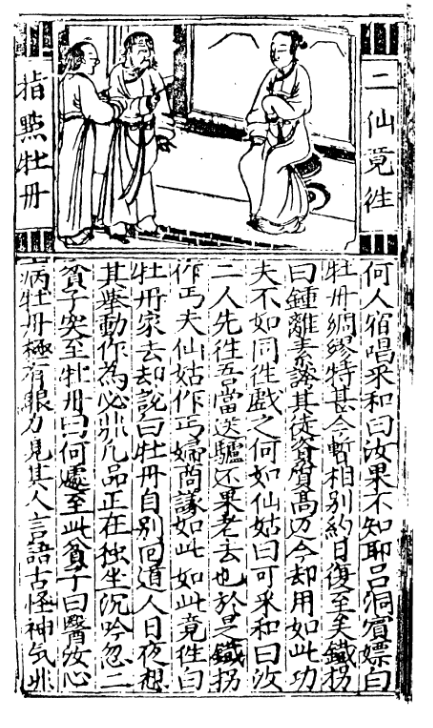 二仙竟徃
指點牡丹
何人宿唱采和曰汝果不知耶吕洞賓嫖白
牡丹綢繆特甚今暫相別約日復至矣鐵拐
曰鍾離素誇其徒資質高邁今却用如此功
夫不如同徃戲之何如仙姑曰可采和曰汝
二人先徃吾當送驢还果老去也於是鐵拐
作丐夫仙姑作丐婦尚議如此如此竟徃白
牡丹家去却說曰牡丹自別回道人日夜想
其舉動作為必非凡品正在独坐沉吟忽二
貧子突至牡丹曰何處至此貧子曰醫汝心
病牡丹極有眼力見其人言語古怪神气非